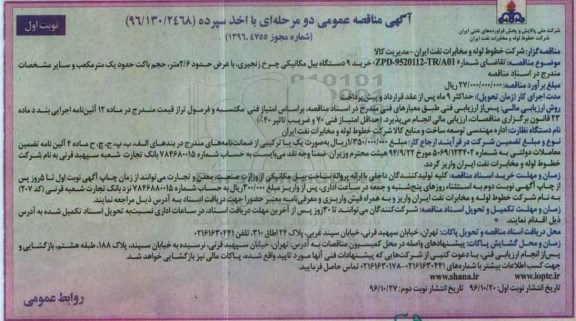 شرکت ملی پالایش و پخش فرآورده‌های نفتی ایران
شرکت خطوط لوله و مخابرات نفت ایران
آگهی مناقصه عمومی دو مرحله‌ای با اخذ سپرده (۹۶/۱۳۰/۲۴۶۸)
(شماره مجوز ۱۳۹۶.۴۷۵۵)
نوبت اول
مناقصه‌گزار: شرکت خطوط لوله و مخابرات نفت ایران-مدیریت کالا
موضوع مناقصه: تقاضای شماره ZPD-9520112-TR/A01، خرید ۹ دستگاه بیل مکانیکی چرخ زنجیری، با عرض حدود ۲/۶متر، حجم باکت حدود یک مترمکعب و سایر مشخصات
مندرج در اسناد مناقصه
مبلغ برآورد مناقصه: ۲۷/۰۰۰/۰۰۰/۰۰۰ ریال
مدت اجرای کار (زمان تحویل): حداکثر ۹ ماه پس از عقد قرارداد و پیش‌پرداخت
روش ارزیابی مالی: پس از ارزیابی فنی طبق معیارهای فنی مندرج در اسناد مناقصه، براساس امتیاز فنی مکتسبه و فرمول تراز قیمت مندرج در ماده ۱۲ آئین‌نامه اجرایی بند د ماده
۲۳ قانون برگزاری مناقصات، ارزیابی مالی انجام می‌پذیرد. (حداقل امتیاز فنی ۷۰ و ضریب تاثیر ۰/۴)
نام دستگاه نظارت: اداره مهندسی توسعه ساخت و منابع کالا شرکت خطوط لوله و مخابرات نفت ایران
نوع و مبلغ تضمین شرکت در فرآیند ارجاع کار: مبلغ ۱/۳۵۰/۰۰۰/۰۰۰ ریال به صورت یک یا ترکیبی از ضمانت‌نامه‌های مندرج در بندهای الف، ب، پ، ج، چ، ح ماده ۴ آئین نامه تضمین
معاملات دولتی به شماره ۱۲۳۴۰۲/ت۵۰۶۵۹ مورخ ۹۴/۹/۲۲ هیئت محترم وزیران. ضمناً وجه نقد می‌بایست به حساب شماره ۷۸۴۶۸۰۰۱۵ بانک تجارت شعبه سپهبد قرنی به نام شرکت
خطوط لوله و مخابرات نفت ایران واریز گردد.
زمان و مهلت خرید اسناد مناقصه: کلیه تولیدکنندگان داخلی با ارائه پروانه ساخت بیل مکانیکی از وزارت صنعت، معدن و تجارت می‌توانند از زمان چاپ آگهی نوبت اول تا ۵ روز پس
از چاپ آگهی نوبت دوم به استثناء روزهای پنج‌شنبه و جمعه در ساعت اداری، پس از واریز مبلغ ۳۰۰/۰۰۰ ریال به حساب شماره ۷۸۴۶۸۸۰۰۱۵ نزد بانک تجارت شعبه قرنی (کد ۲۰۷)
به نام شرکت خطوط لوله و مخابرات نفت ایران واریز و به همراه فیش واریزی و معرفی‌نامه معتبر حضوراً جهت دریافت اسناد به آدرس ذیل مراجعه نمایند.
زمان و مهلت تکمیل و تحویل اسناد مناقصه: شرکت‌کنندگان می‌توانند تا ۳۰ روز پس از آخرین مهلت دریافت اسناد، در ساعات اداری نسبت به تحویل اسناد تکمیل شده به آدرس
ذیل اقدام نمایند.
محل دریافت اسناد مناقصه و تحویل پاکات: تهران، خیابان سپهبد قرنی، خیابان سپند غربی، پلاک ۲۴ اطاق ۳۱۰، تلفن ۰۲۱۶۱۶۳۰۴۴۱
زمان و محل گشایش پاکات: پیشنهادهای واصله در محل کمیسیون مناقصات به آدرس: تهران، خیابان سپهبد قرنی، نرسیده به خیابان سپند، پلاک ۱۸۸، طبقه هشتم، بازگشایی و
پس از انجام ارزیابی فنی، با دعوت کتبی از شرکت‌هایی که پیشنهادات فنی آنها مورد تایید واقع شده، پاکات مالی نیز بازگشایی خواهد شد.
جهت کسب اطلاعات بیشتر با شماره‌های ۰۲۱۶۱۶۳۰۴۴۱-۰۲۱۶۱۶۳۰۱۷۸ تماس حاصل فرمایید.
www.shana.ir www.ioptc.ir
تاریخ انتشار نوبت اول: ۹۶/۱۰/۲۰ تاریخ انتشار نوبت دوم: ۹۶/۱۰/۲۷
روابط عمومی